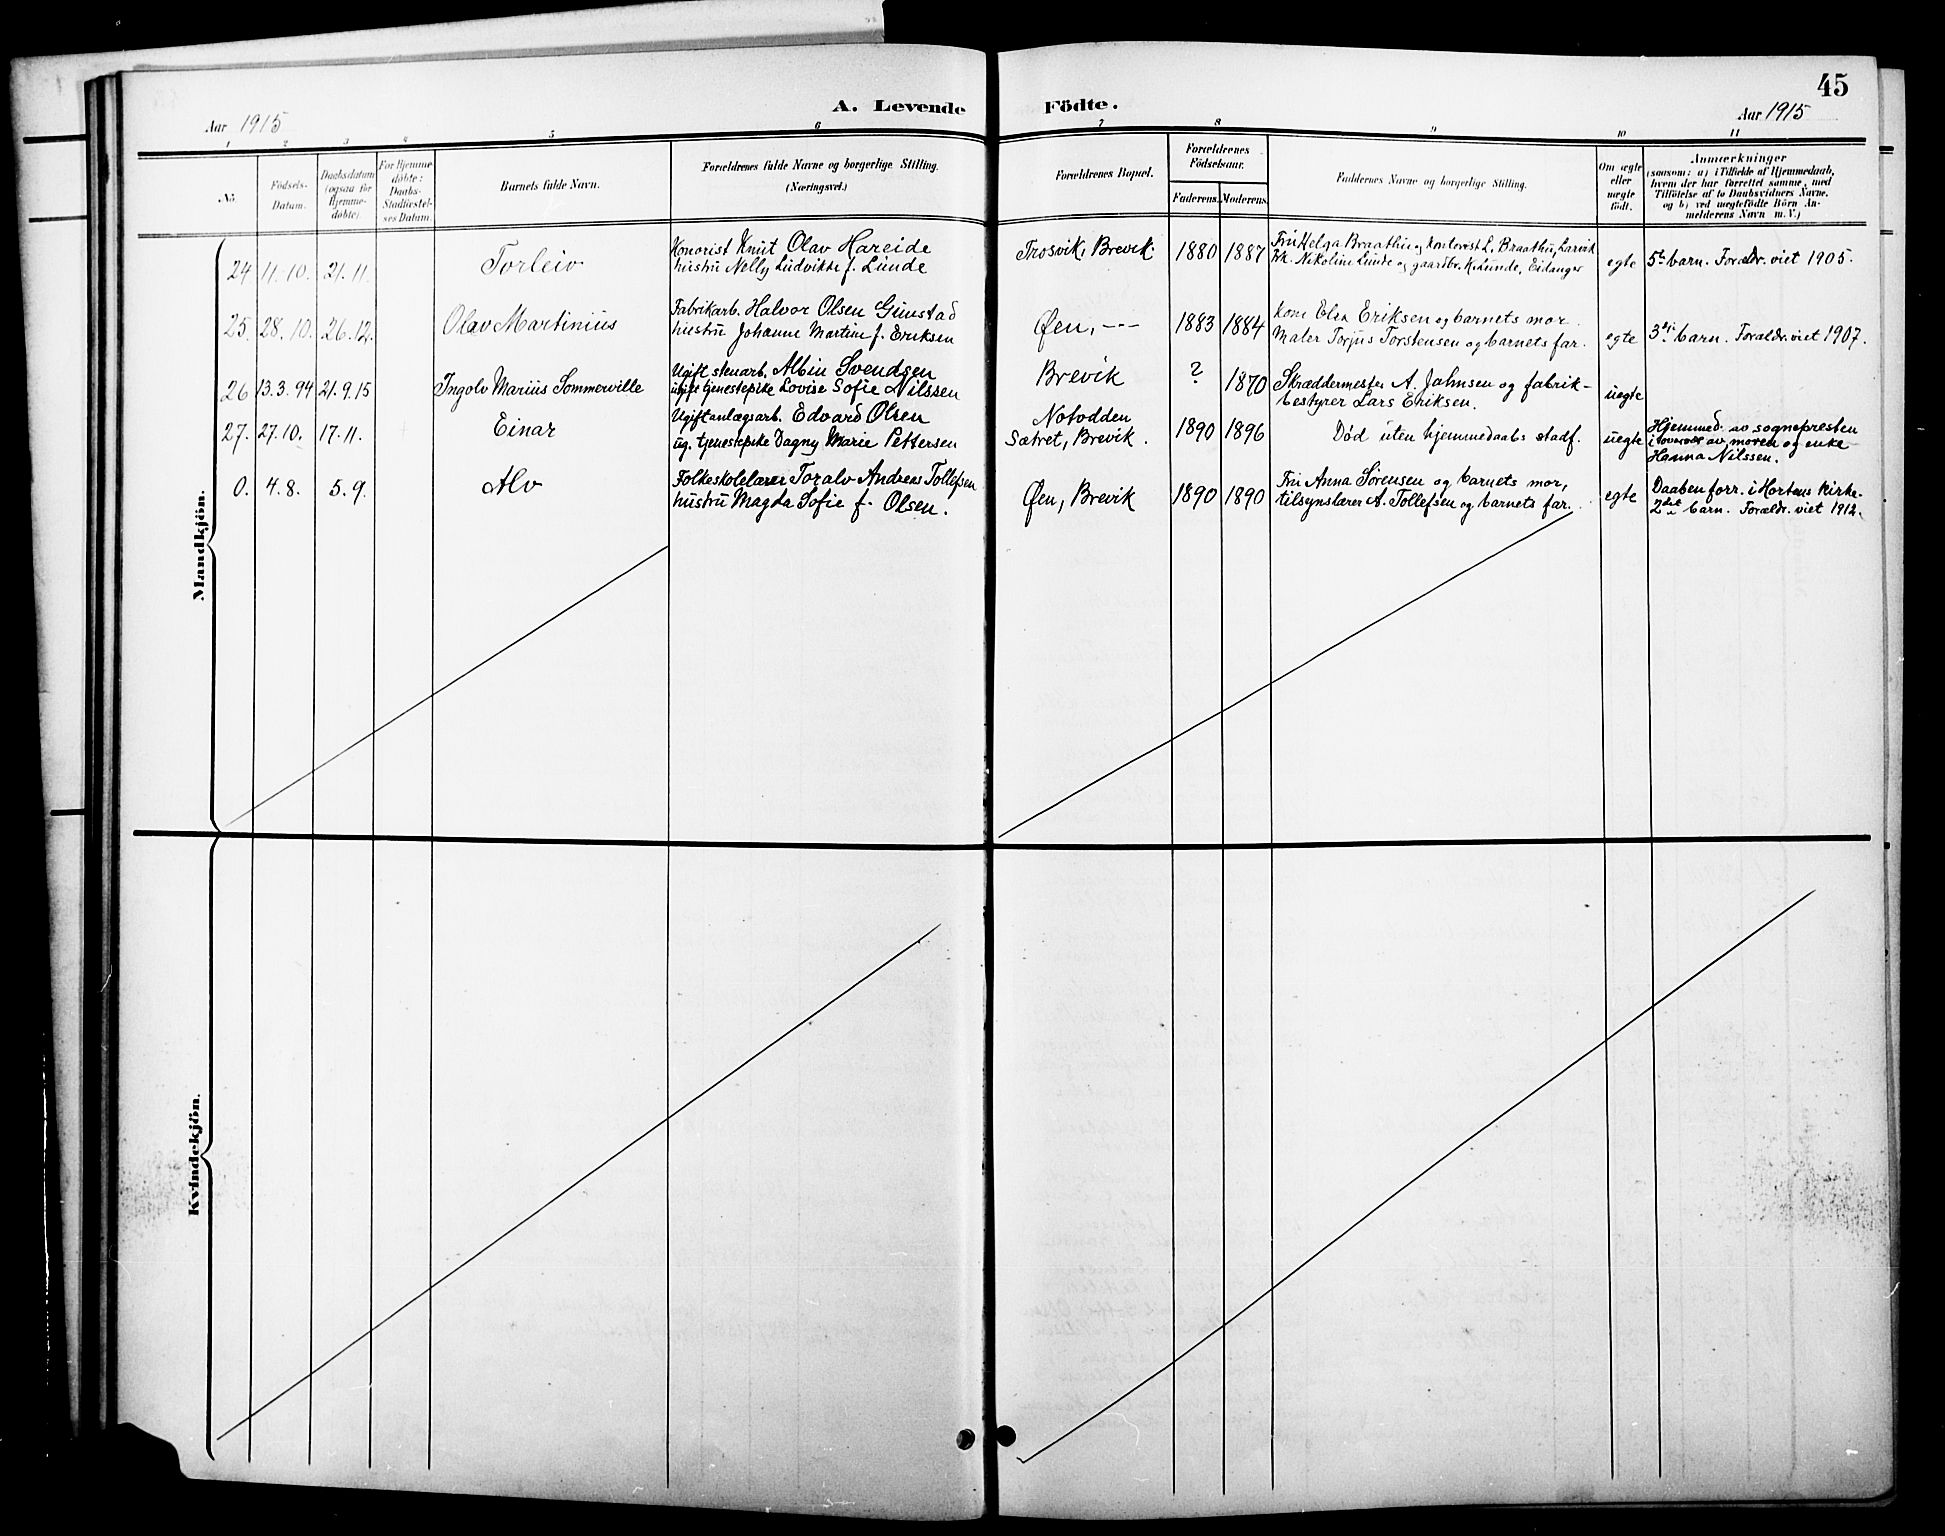 45
A. Levende Födte.
Aar 1915
Aar 1915
1 2 3 4 5 6 7 8 9 10 11
No.
Födsels-
Datum.
Daabsdatum
(ogsaa for
Hjemme-
döbte).
For Hjemme
döbte:
Daabs-
Stadfæstel-
ses Datum.
Barnets fulde Navn.
Forældrenes fulde Navne og borgerlige Stilling.
(Næringsvei.)
Forældrenes Bopæl.
Forældrenes
Födselsaar.
Faderens. Moderens.
Faddernes Navne og borgerlige Stilling.
Om ægte
eller
uægte
født.
Anmærkninger
(saasom: a) i Tilfælde af Hjemmedaab,
hvem der har forrettet samme, med
Tilföielse af to Daabsvidners Navne.
og b) ved uægtefödte Börn An-
melderens Navn m. V.)
Mandkjön.
24 11.10. 21.11. Torleiv
Knut Olav Hareide
hustru Nelly Ludvikke f. Lunde
Trosvik, Brevik. 1880 1887
Fru Helga Braathu og kontorist L. Braathu, Larvik
Frk. Nikoline Lunde og gaardbr. K. Lunde, Eidanger
egte 5te barn. Forældr. viet 1905.
25. 28.10. 26.12. Olav Martinius
Fabrikarb. Halvor Olsen Gunstad
hustru Johanne Martine f. Eriksen
Øen, -"- 1883 1884
kone Elen Eriksen og barnets mor.
Maler Torjus Torstensen og barnets far.
egte 3die barn. Forældr. viet 1907.
26 13.3.94 21.9.15 Ingolv Marius Sommerville
Ugift stenarb. Albin Svendsen
ugift tjenestepike Lovise Sofie Nilssen
Brevik ? 1870
Skræddermester A. Jahnsen og fabrik-
bestyrer Lars Eriksen.
uegte
27. 27.10. 17.11. Einar
Ugift anlægsarb. Edvard Olsen
ug. tjenestepike Dagny Marie Pettersen
Notodden
Sætret, Brevik. 1890 1896
Død uten hjemmedaabs stadf.
uegte
Hjemmed. av sognepresten
i overvær av moren og enke
Hanna Nilssen.
0. 4.8. 5.9. Alv
Folkeskolelærer Toralv Andreas Tollefsen
hustru Magda Sofie f. Olsen.
Øen, Brevik 1890 1890
Fru Anna Sörensen og barnets mor,
tilsynslærer A. Tollefsen og barnets far.
egte
Daaben forr. i Hortens Kirke.
2det barn. Forældr. viet 1912.
Kvindekjön.